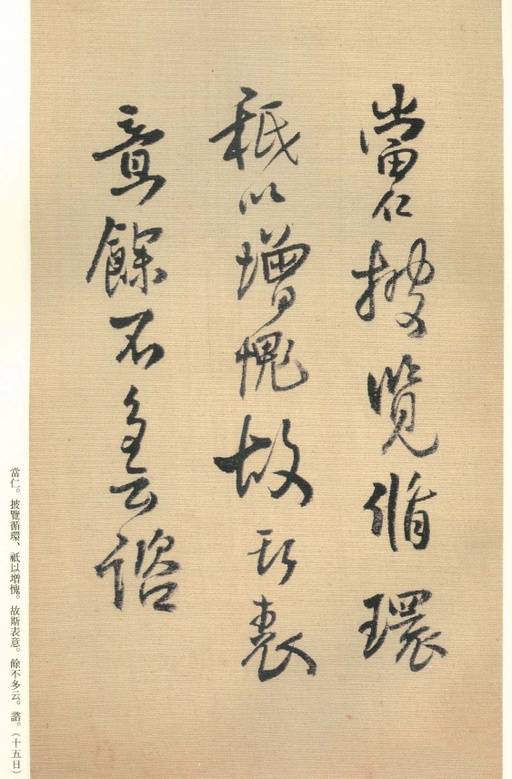 當仁披覽循環
秖以增愧故斯表
意餘不多云諮
當仁。披覽循環、祇以增愧。故斯表意。餘不多云。諮。(十五日)